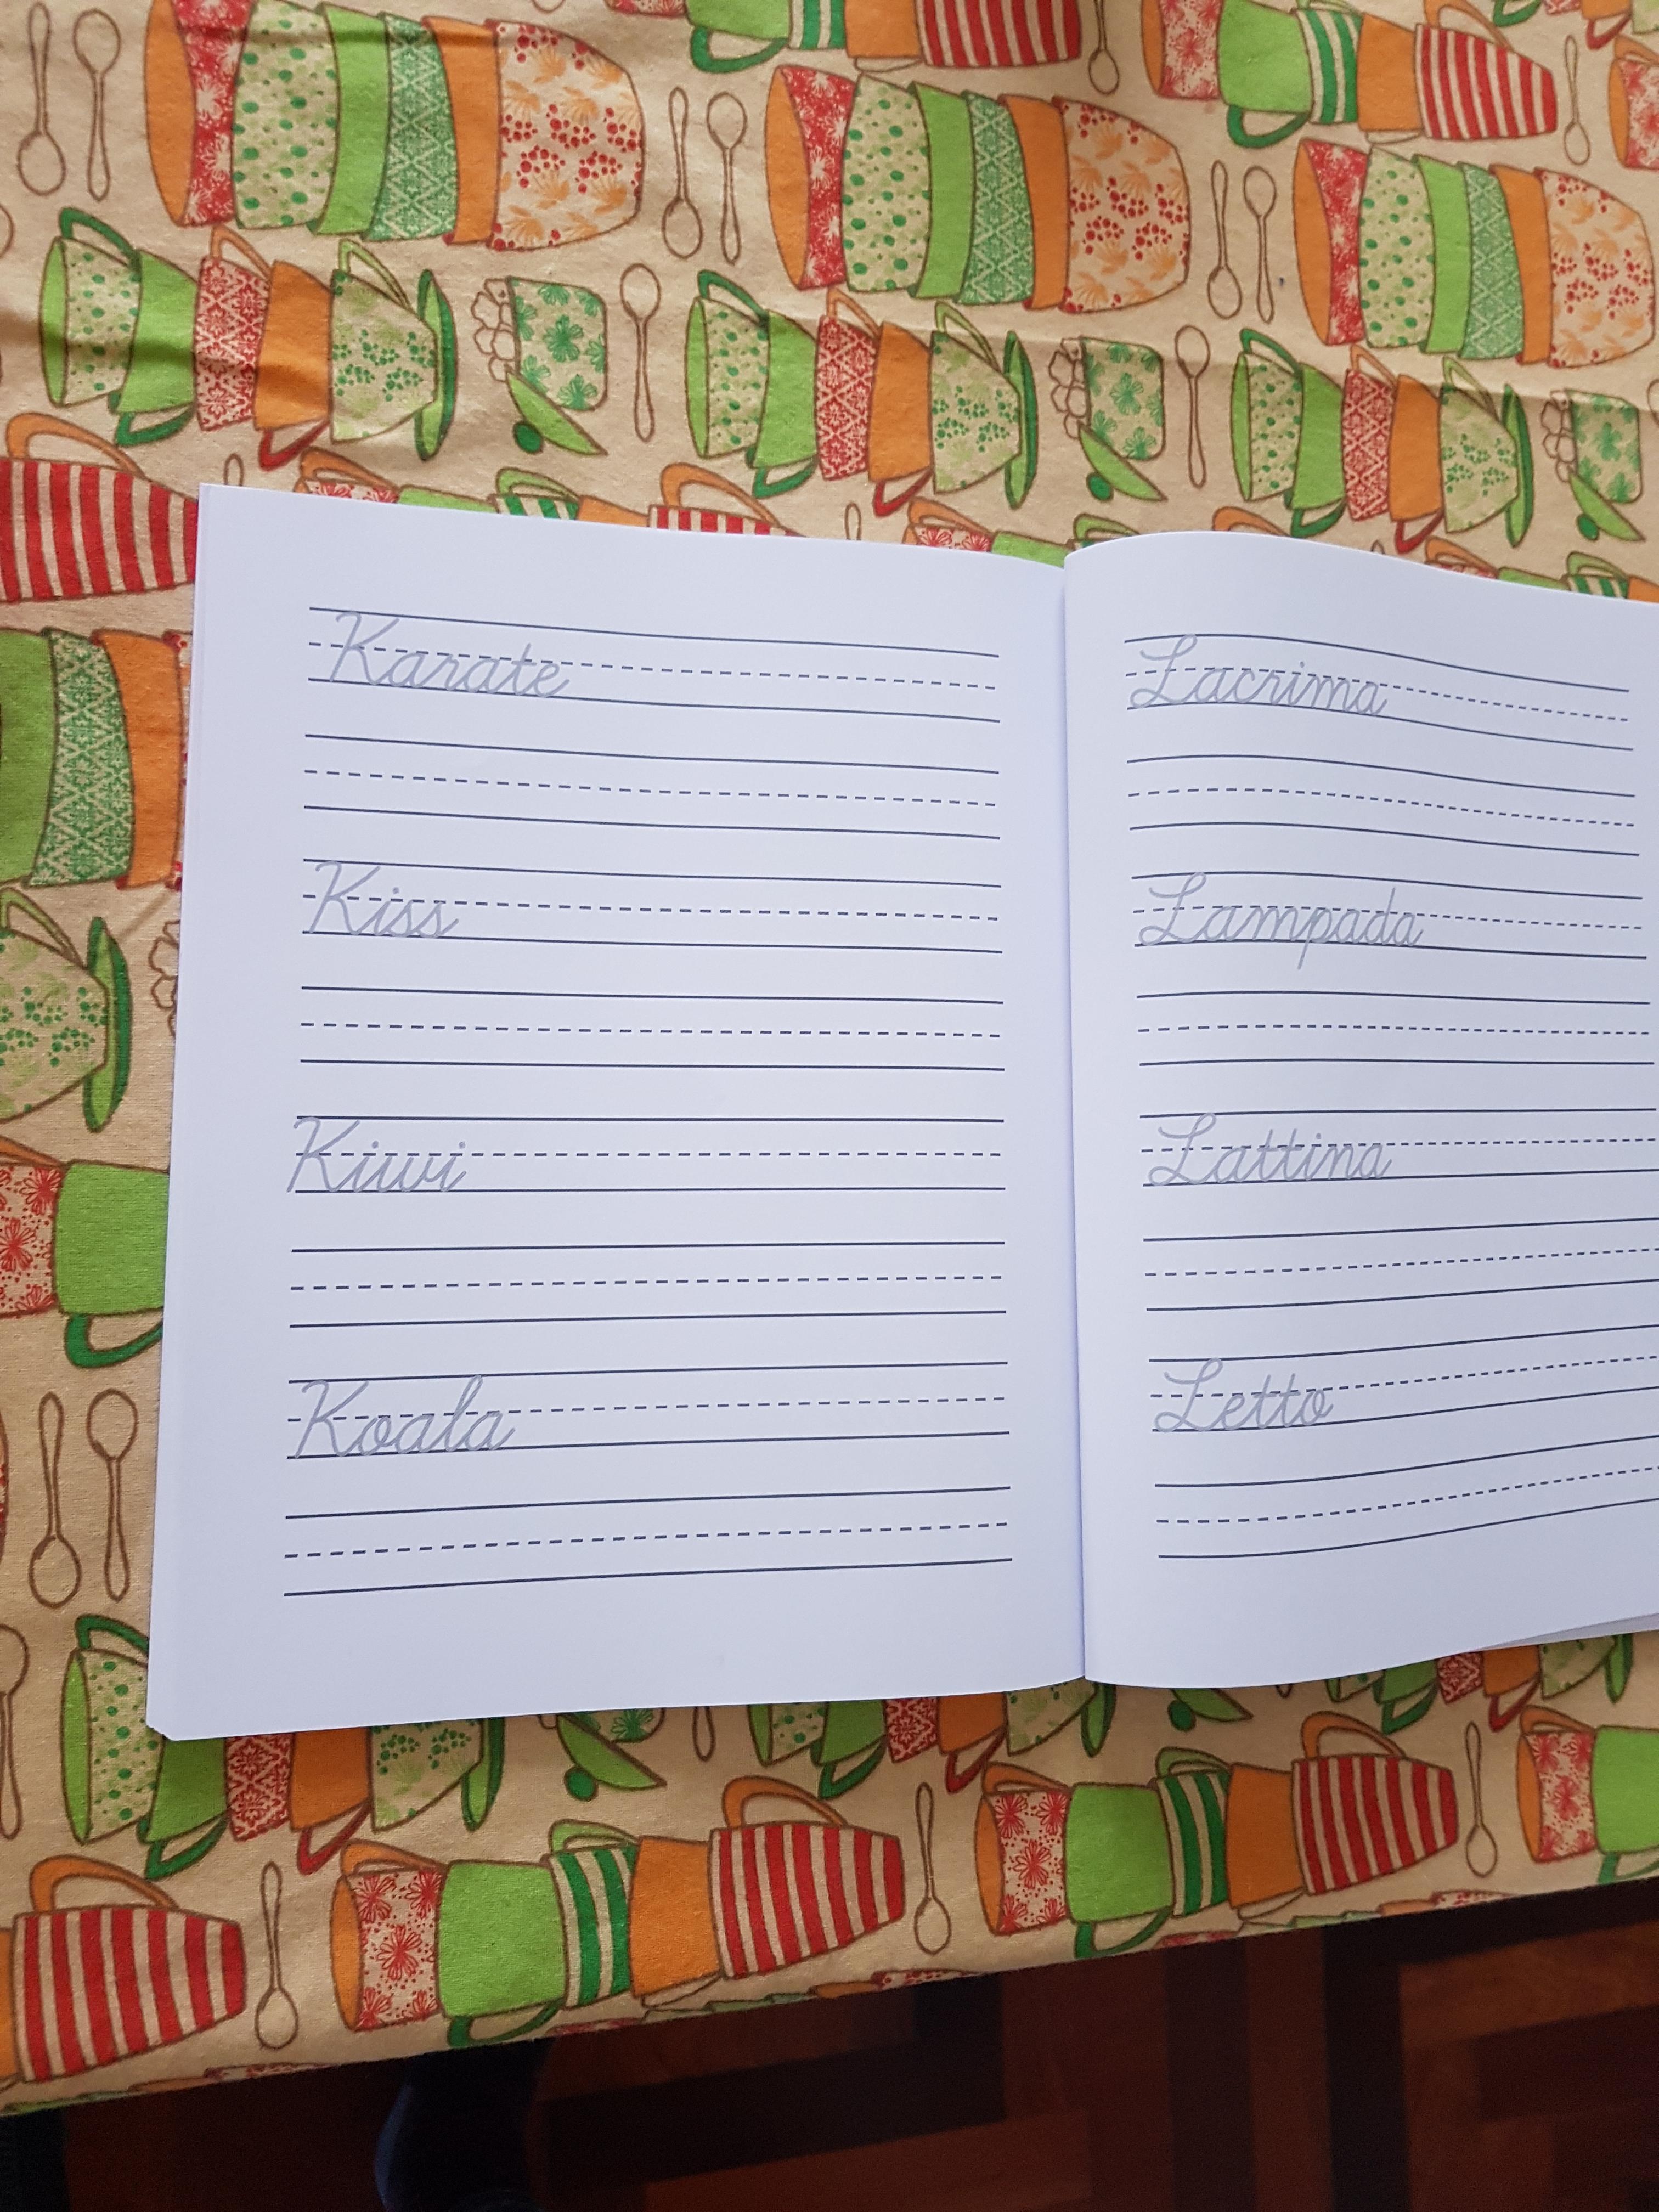 Karate
Kiss
Kiwi
Koala
Lacrima
Lampada
Lattina
Letto